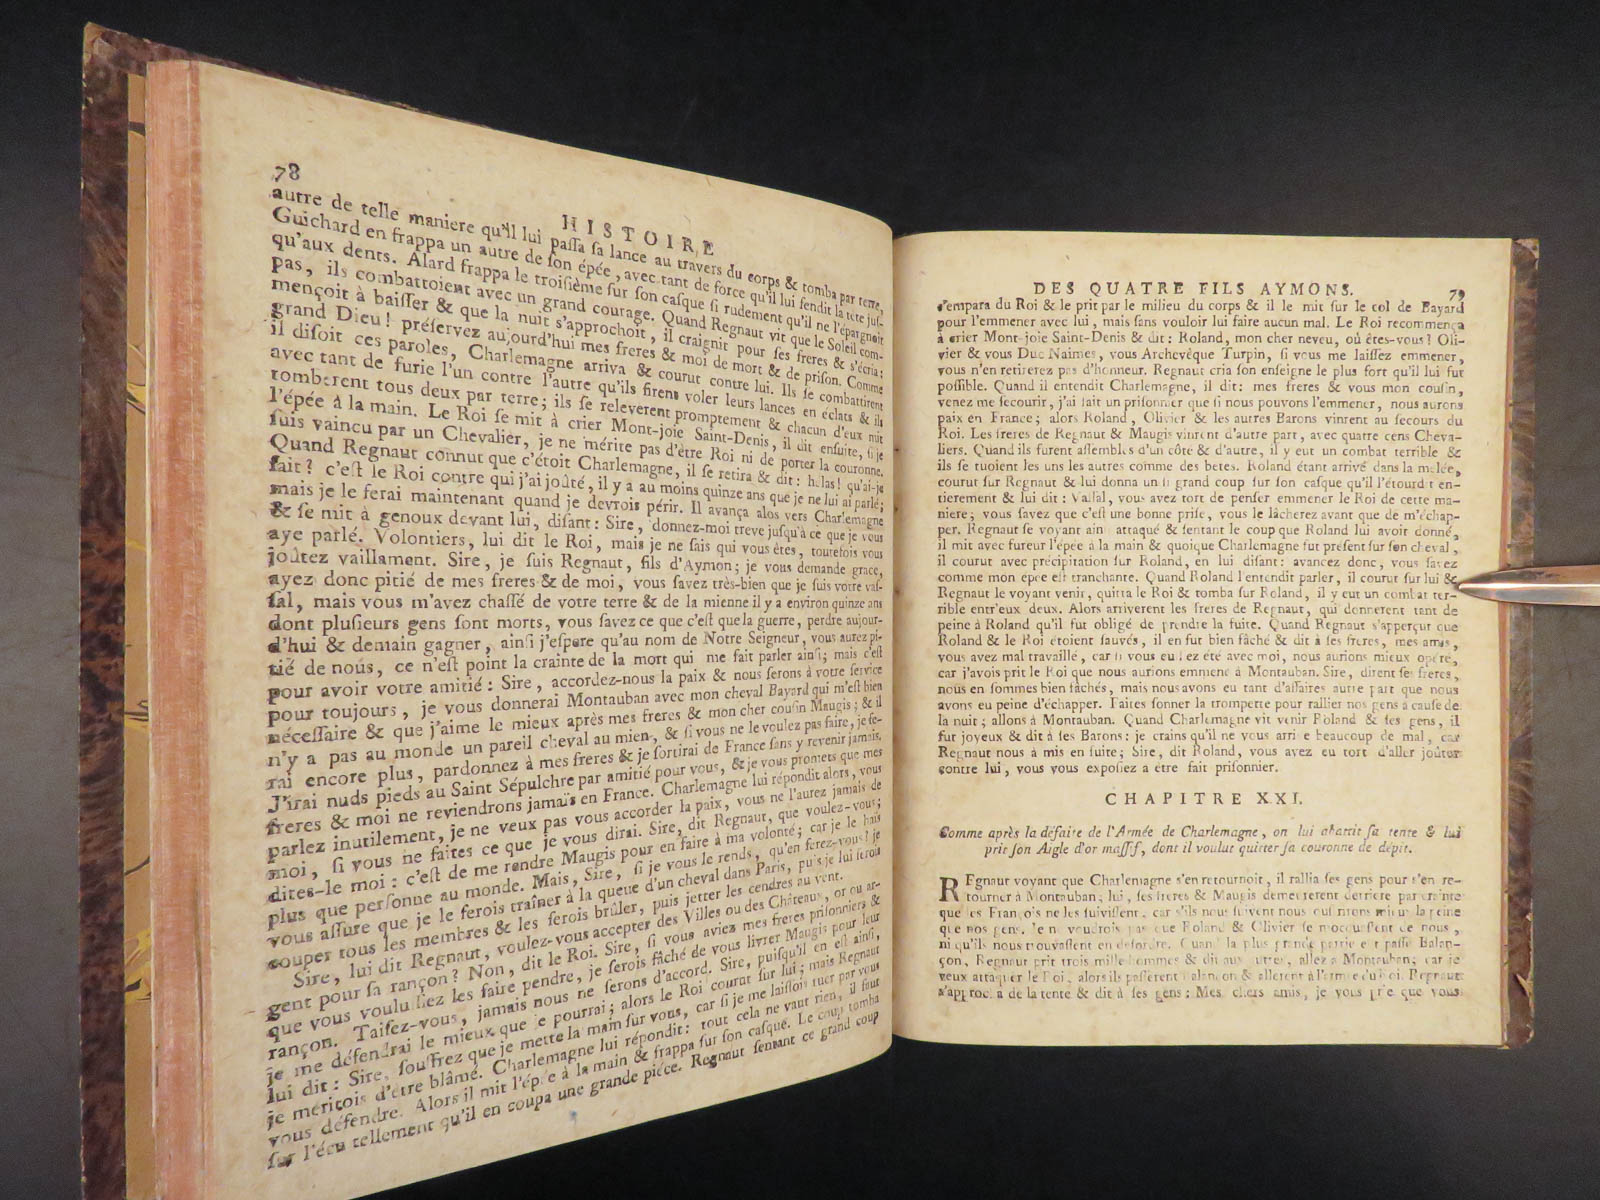 78
HISTOIRE
autre de telle maniere qu'il lui paſſa ſa lance au travers du corps & tomba par terre,
Guichard en frappa un autre de ſon épée, avec tant de force qu'il lui fendit la tête juſ-
qu'aux dents. Alard frappa le troiſième ſur ſon caſque ſi rudement qu'il ne l'épargnoit
pas, ils combattoient avec un grand courage. Quand Regnaut vit que le Soleil com-
mençoit à baiſſer & que la nuit s'approchoit, il craignit pour ſes freres & s'écria:
grand Dieu! préſervez aujourd'hui mes freres & moi de mort & de priſon. Comme
il diſoit ces paroles, Charlemagne arriva & courut contre lui. Ils ſe combattirent
avec tant de furie l'un contre l'autre qu'ils firent voler leurs lances en éclats & ils
tomberent tous deux par terre; ils ſe releverent promptement & chacun d'eux mit
l'épée à la main. Le Roi ſe mit à crier Mont-joie Saint-Denis, il dit enſuite, ſi je
ſuis vaincu par un Chevalier, je ne mérite pas d'être Roi ni de porter la couronne.
Quand Regnaut connut que c'étoit Charlemagne, il ſe retira & dit: hélas! qu'ai-je
fait? c'eſt le Roi contre qui j'ai joûté, il y a au moins quinze ans que je ne lui ai parlé;
mais je le ferai maintenant quand je devrois périr. Il avança alos vers Charlemagne
& ſe mit à genoux devant lui, diſant: Sire, donnez-moi treve juſqu'à ce que je vous
aye parlé. Volontiers, lui dit le Roi, mais je ne ſais qui vous êtes, toutefois vous
joûtez vaillament. Sire, je ſuis Regnaut, fils d'Aymon; je vous demande grace,
ayez donc pitié de mes freres & de moi, vous ſavez très-bien que je ſuis votre vaſ-
ſal, mais vous m'avez chaſſé de votre terre & de la mienne il y a environ quinze ans
dont pluſieurs gens ſont morts, vous ſavez ce que c'eſt que la guerre, perdre aujour-
d'hui & demain gagner, ainſi j'eſpere qu'au nom de Notre Seigneur, vous aurez pi-
tié de nous, ce n'eſt point la crainte de la mort qui me fait parler ainſi; mais c'eſt
pour avoir votre amitié: Sire, accordez-nous la paix & nous ſerons à votre ſervice
pour toujours, je vous donnerai Montauban avec mon cheval Bayard qui m'eſt bien
néceſſaire & que j'aime le mieux après mes freres & mon cher couſin Maugis; & il
n'y a pas au monde un pareil cheval au mien, & ſi vous ne le voulez pas faire, je ſe-
rai encore plus, pardonnez à mes freres & je ſortirai de France ſans y revenir jamais.
J'irai nuds pieds au Saint Sépulchre par amitié pour vous, & je vous promets que mes
freres & moi ne reviendrons jamais en France. Charlemagne lui répondit alors, vous
parlez inutilement, je ne veux pas vous accorder la paix, vous ne l'aurez jamais de
moi, ſi vous ne faites ce que je vous dirai. Sire, dit Regnaut, que voulez-vous;
dites-le moi: c'eſt de me rendre Maugis pour en faire à ma volonté; car je le hais
plus que perſonne au monde. Mais, Sire, ſi je vous le rends, qu'en ferez-vous? je
vous aſſure que je le ferois traîner à la queue d'un cheval dans Paris, puis je lui ferois
couper tous les membres & les ferois brûler, puis jetter les cendres au vent.
Sire, lui dit Regnaut, voulez-vous accepter des Villes ou des Châteaux, or ou ar-
gent pour ſa rançon? Non, dit le Roi. Sire, ſi vous aviez mes freres priſonniers &
que vous vouluſſiez les faire pendre, je ſerois fâché de vous livrer Maugis pour leur
rançon. Taiſez-vous, jamais nous ne ſerons d'accord. Sire, puiſqu'il en eſt ainſi,
je me défendrai le mieux que je pourrai; alors le Roi courut ſur lui; mais Regnaut
lui dit: Sire, ſouffrez que je mette la main ſur vous, car ſi je me laiſſois tuer par vous
je méritois d'être blâmé. Charlemagne lui répondit: tout cela ne vaut rien, il faut
vous défendre. Alors il mit l'épée à la main & frappa ſur ſon caſque. Le coup tomba
ſur l'écu tellement qu'il en coupa une grande piéce. Regnaut ſentant ce grand coup
DES QUATRE FILS AYMONS. 79
s'empara du Roi & le prit par le milieu du corps & il le mit ſur le col de Bayard
pour l'emmener avec lui, mais ſans vouloir lui faire aucun mal. Le Roi recommença
à crier Mont-joie Saint-Denis & dit: Roland, mon cher neveu, où êtes-vous? Oli-
vier & vous Duc Naimes, vous Archevêque Turpin, ſi vous me laiſſez emmener,
vous n'en retirerez pas d'honneur. Regnaut cria ſon enſeigne le plus fort qu'il lui fut
poſſible. Quand il entendit Charlemagne, il dit: mes freres & vous mon couſin,
venez me ſecourir, j'ai fait un priſonnier que ſi nous pouvons l'emmener, nous aurons
paix en France; alors Roland, Olivier & les autres Barons vinrent au ſecours du
Roi. Les freres de Regnaut & Maugis vinrent d'autre part, avec quatre cens Cheva-
liers. Quand ils furent aſſemblés d'un côté & d'autre, il y eut un combat terrible &
ils ſe tuoient les uns les autres comme des betes. Roland étant arrivé dans la mêlée,
courut ſur Regnaut & lui donna un ſi grand coup ſur ſon caſque qu'il l'étourdit en-
tierement & lui dit: Vaſſal, vous avez tort de penſer emmener le Roi de cette ma-
niere; vous ſavez que c'eſt une bonne priſe, vous le lâcherez avant que de m'échap-
per. Regnaut ſe voyant ainſi attaqué & ſentant le coup que Roland lui avoit donné,
il mit avec fureur l'épée à la main & quoique Charlemagne fut préſent ſur ſon cheval,
il courut avec précipitation ſur Roland, en lui diſant: avancez donc, vous ſavez
comme mon épée eſt tranchante. Quand Roland l'entendit parler, il courut ſur lui &
Regnaut le voyant venir, quitta le Roi & tomba ſur Roland, il y eut un combat ter-
rible entr'eux deux. Alors arriverent les freres de Regnaut, qui donnerent tant de
peine à Roland qu'il fut obligé de prendre la fuite. Quand Regnaut s'apperçut que
Roland & le Roi étoient ſauvés, il en fut bien fâché & dit à ſes freres, mes amis,
vous avez mal travaillé, car ſi vous euſſiez été avec moi, nous aurions mieux opéré,
car j'avois prit le Roi que nous aurions emmené à Montauban. Sire, dirent ſes freres,
nous en ſommes bien fâchés, mais nous avons eu tant d'affaires autre part que nous
avons eu peine d'échapper. Faites ſonner la trompette pour rallier nos gens à cauſe de
la nuit; allons à Montauban. Quand Charlemagne vit venir Roland & ſes gens, il
fut joyeux & dit à ſes Barons: je crains qu'il ne vous arrive beaucoup de mal, car
Regnaut nous a mis en fuite; Sire, dit Roland, vous avez eu tort d'aller joûter
contre lui, vous vous expoſiez a être fait priſonnier.
CHAPITRE XXI.
Comme après la défaite de l'Armée de Charlemagne, on lui abattit ſa tente & lui
prit ſon Aigle d'or maſſif, dont il voulut quitter ſa couronne de dépit.
REgnaut voyant que Charlemagne s'en retournoit, il rallia ſes gens pour s'en re-
tourner à Montauban; lui, ſes freres & Maugis demeurerent derriere par crainte
que les François ne les ſuiviſſent, car s'ils nous ſuivent nous ſouffrirons mieux la peine
que nos gens, je n'en voudrois pas que Roland & Olivier ſe mocquaſſent de nous,
ni qu'ils nous trouvaſſent en deſordre. Quand la plus grande partie eut paſſé Balan-
çon, Regnaut prit trois mille hommes & dit aux autres, allez à Montauban; car je
veux attaquer le Roi, alors ils paſſerent Balançon & allerent à l'armée du Roi. Regnaut
s'approcha de la tente & dit à ſes gens: Mes chers amis, je vous prie que vous